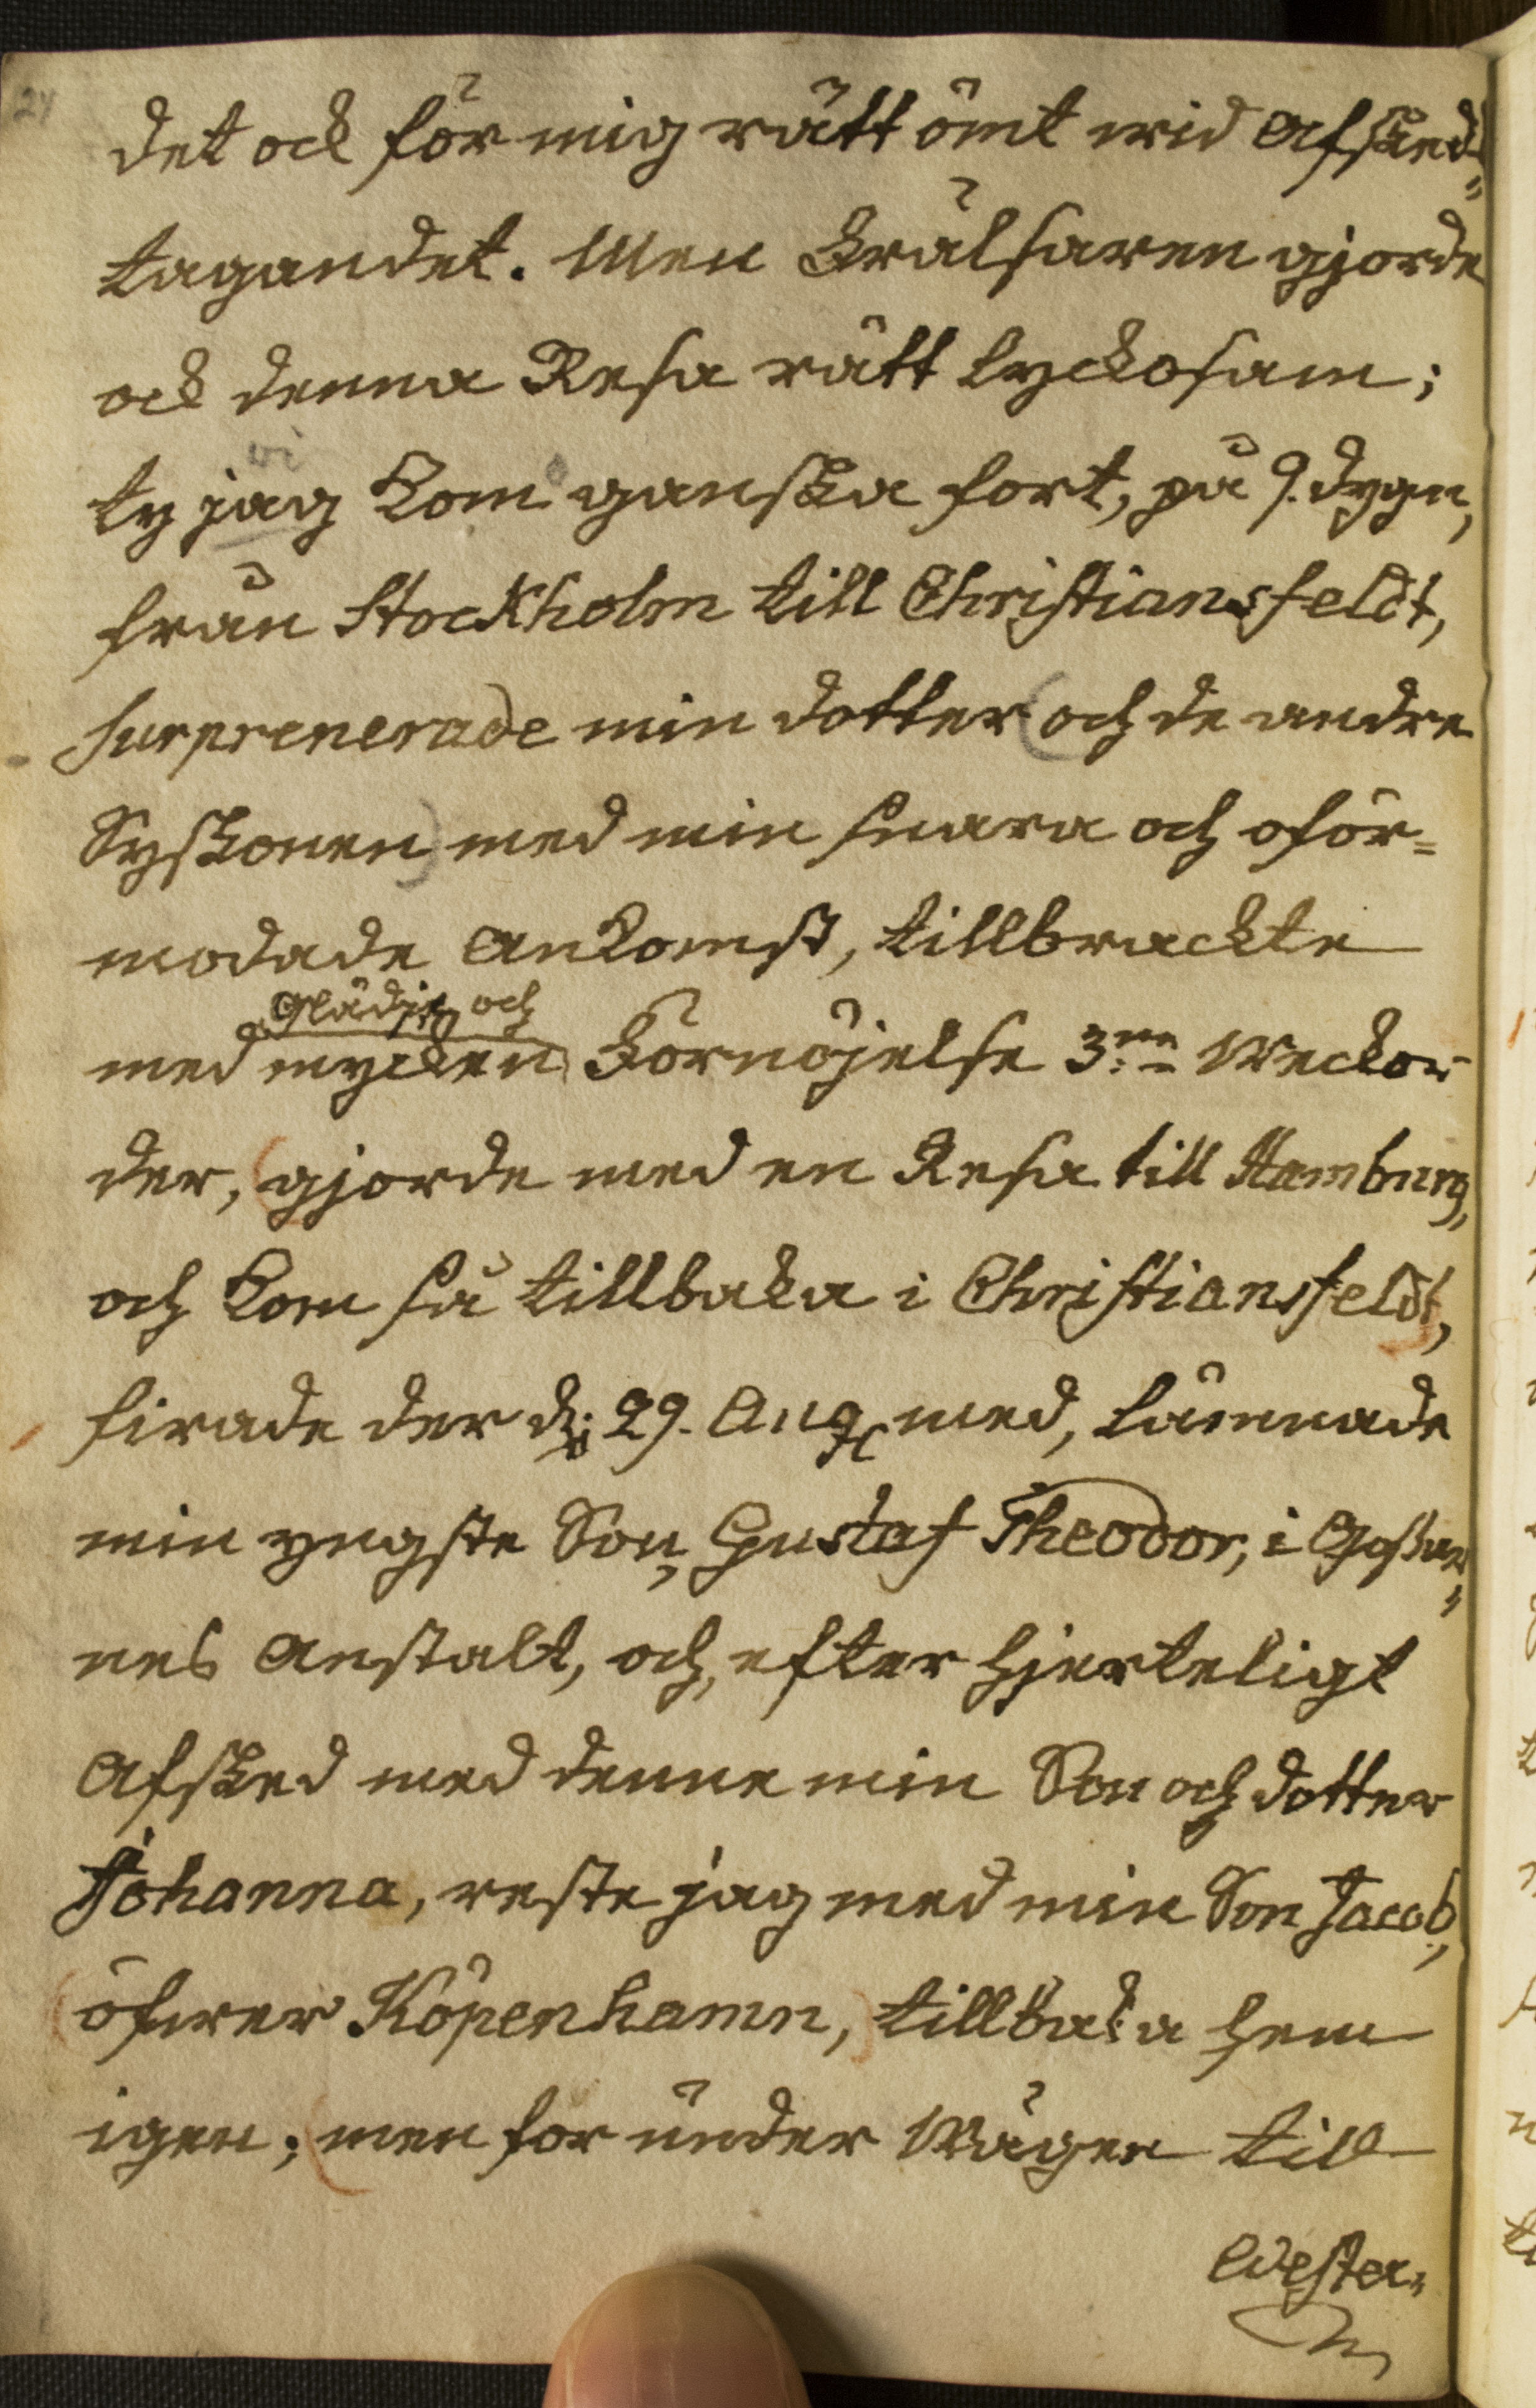 24
det ock för mig rätt ömt wid Afsked=
tagandet. Men Frälsaren gjorde
ock denna Resa rätt lyckosam;
wi
ty jag kom ganska fort, på 9. dygn,
från Stockholm till Christiansfeldt,
surprenerade min dotter (och de andre
Syskonen) med min snara och oför=
modade Ankomst, tillbrackte
Glädje och
med mycken Förnöjelse 3:ne Weckor
der, (gjorde med en Resa till Hamburg,
och kom så tillbaka i Christiansfeldt,
firade der d: 29. Aug. med, lämnade
min yngste Son, Gustaf Theodor, i Gossar=
nes Anstalt, och, efter hjerteligt
Afsked med denne min Son och dotter
Johanna, reste jag med min Son Jacob,
(öfwer Köpenhamn,) tillbaka hem
igen; (men for under Wägen till
Wester=